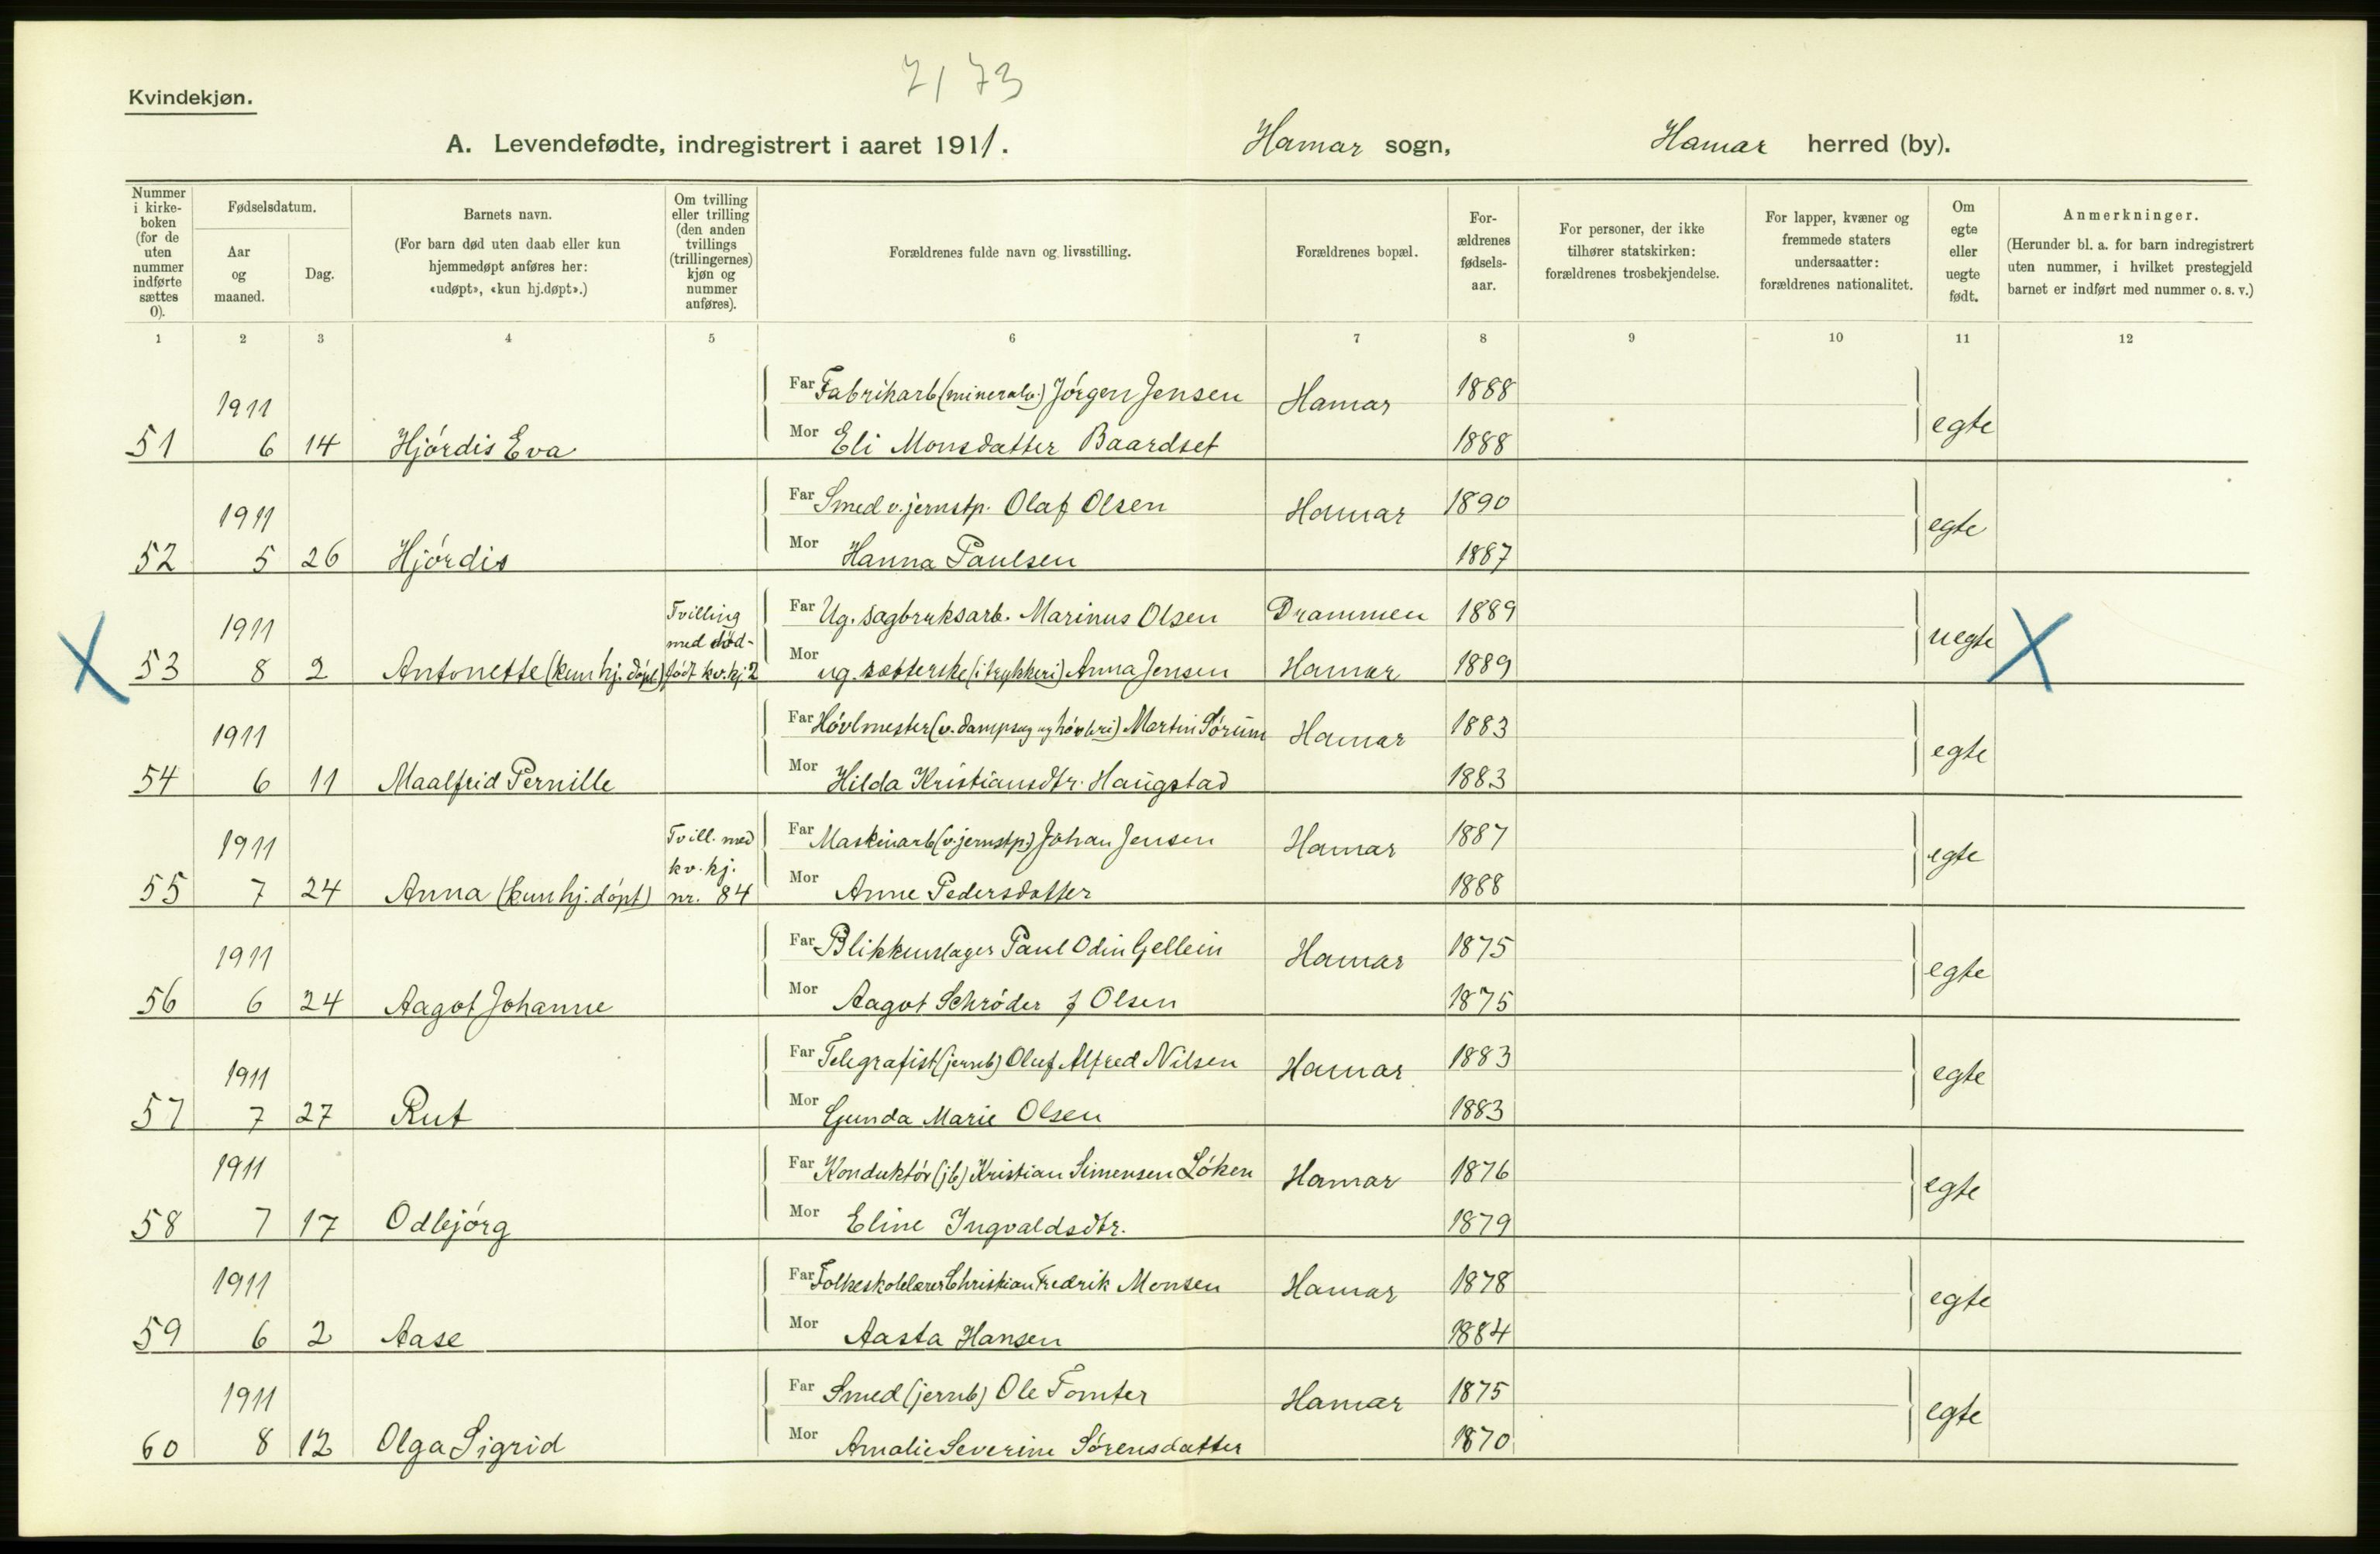 7173
Kvindekjøn.
A. Levendefødte, indregistrert i aaret 1911. Hamar sogn, Hamar herred (by).
Nummer i kirke- boken (for de uten nummer indførte sættes 0).
Fødselsdatum.
Aar og maaned.
Dag.
Barnets navn.
(For barn død uten daab eller kun hjemmedøpt anføres her: «udøpt», «kun hj.døpt».)
Om tvilling eller trilling (den anden tvillings (trillingernes) kjøn og nummer anføres).
Forældrenes fulde navn og livsstilling.
Forældrenes bopæl.
For- ældrenes fødsels- aar.
For personer, der ikke tilhører statskirken: forældrenes trosbekjendelse.
For lapper, kvæner og fremmede staters undersaatter: forældrenes nationalitet.
Om egte eller uegte født.
Anmerkninger.
(Herunder bl. a. for barn indregistrert uten nummer, i hvilket prestegjeld barnet er indført med nummer o. s. v.)
1 2 3 4 5 6 7 8 9 10 11 12
1911 Far Fabrikarb (mineralv.) Jörgen Jensen Hamar 1888 egte
51 6 14 Hjördis Eva Mor Eli Monsdatter Baardset 1888
1911 Far Smed v. jernstp. Olaf Olsen Hamar 1890 egte
52 5 26 Hjördis Mor Hanna Paulsen 1887
1911 Tvilling med död- Far Ug. sagbruksarb. Marinus Olsen Drammen 1889 uegte
X 53 8 2 Antonette (kun hj. döpt) födt kv. kj 2 Mor ug. sætterske (i trykkeri) Anna Jensen Hamar 1889 X
1911 Far Hövlmester (v. dampsag og hövleri) Martin Sörum Hamar 1883 egte
54 6 11 Maalfrid Pernille Mor Hilda Kristiansdtr. Haugstad 1883
1911 Tvill. med kv. kj. Far Maskinarb (v. jernstp.) Johan Jensen Hamar 1887 egte
55 7 24 Anna (kun hj. döpt) nr. 84 Mor Anne Pedersdatter 1888
1911 Far Blikkenslager Paul Odin Gellein Hamar 1875 egte
56 6 24 Aagot Johanne Mor Aagot Schröder f Olsen 1875
1911 Far Telegrafist (jernb) Oluf Alfred Nilsen Hamar 1883 egte
57 7 27 Rut Mor Gunda Marie Olsen 1883
1911 Far Konduktör (jb) Kristian Simensen Löken Hamar 1876 egte
58 7 17 Odbjörg Mor Eline Ingvaldsdtr. 1879
1911 Far Folkeskolelærer Christian Fredrik Monsen Hamar 1878 egte
59 6 2 Aase Mor Aasta Hansen 1884
1911 Far Smed (jernb) Ole Tomter Hamar 1875 egte
60 8 12 Olga Sigrid Mor Amalie Severine Sörensdatter 1870